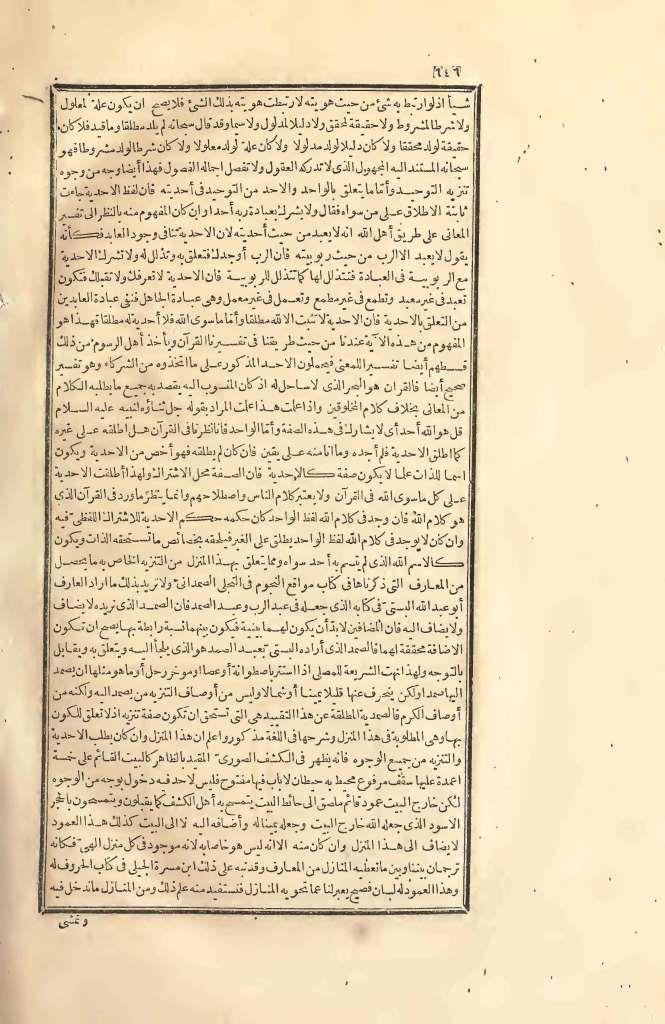 ٦٤٦
شيأ اذ لو ارتبط به شئ من حيث هويته لارتبطت هويته بذلك الشئ فلا يصح ان يكون علة لمعلول
ولا شرطا لمشروط ولا حقيقة لمحقق ولا دليلا لمدلول ولا سيما وقد قال سبحانه لم يلد مطلقا وما قيد فلا كان
حقيقة لولد محققا ولا كان دليلا لولد مدلولا ولا كان علة لولد معلولا ولا كان شرطا لولد مشروطا فهو
سبحانه المستند اليه المجهول الذى لا تدركه العقول ولا تفصل اجماله الفصول فهذا أيضا وجه من وجوه
تنزيه التوحيد وأما ما يتعلق بالواحد والاحد من التوحيد فى أحديته فان لفظ الاحدية جاءت
ثابتة الاطلاق على من سواه فقال ولا يشرك بعبادة ربه أحدا وان كان المفهوم منه بالنظر الى تفسير
المعانى على طريق أهل الله انه لا يعبد من حيث أحديته لان الاحدية تنافى وجود العابد فكأنه
يقول لا يعبد الا الرب من حيث ربوبيته فان الرب أوجدك فتعلق به وتذلل له ولا تشرك الاحدية
مع الربوبية فى العبادة فتتذلل لها كما تتذلل للربوبية فان الاحدية لا تعرفك ولا تقبلك فتكون
تعبد فى غير معبد وتطمع فى غير مطمع وتعمل فى غير معمل وهى عبادة الجاهل فنفى عبادة العابدين
من التعلق بالاحدية فان الاحدية لا تثبت الا لله مطلقا وأما ما سوى الله فلا أحدية له مطلقا فهذا هو
المفهوم من هذه الآية عندنا من حيث طريقنا فى تفسيرنا القرآن ويأخذ أهل الرسوم من ذلك
قسطهم أيضا تفسيرا للمعنى فيحملون الاحد المذكور على ما اتخذوه من الشركاء وهو تفسير
صحيح أيضا فالقرآن هو البحر الذى لا ساحل له اذ كان المنسوب اليه يقصد به جميع ما يطلبه الكلام
من المعانى بخلاف كلام المخلوقين واذا علمت هذا علمت المراد بقوله جل ثناؤه لنبيه عليه السلام
قل هو الله أحد أى لا يشارك فى هذه الصفة وأما الواحد فانا نظرنا فى القرآن هل اطلقه على غيره
كما اطلق الاحدية فلم أجده وما أنا منه على يقين فان كان لم يطلقه فهو أخص من الاحدية ويكون
اسما للذات علما لا يكون صفة كالاحدية فان الصفة محل الاشتراك ولهذا أطلقت الاحدية
على كل ما سوى الله فى القرآن ولا يعتبر كلام الناس واصطلاحهم وانما ينظر ما ورد فى القرآن الذى
هو كلام الله فان وجد فى كلام الله لفظ الواحد كان حكمه حكم الاحدية للاشتراك اللفظى فيه
وان كان لا يوجد فى كلام الله لفظ الواحد يطلق على الغير فيلحقه بخصائص ما تستحقه الذات ويكون
كالاسم الله الذى لم يتسم به أحد سواه ومما يتعلق بهذا المنزل من التنزيه الخاص به ما يحصل
من المعارف التى ذكرناها فى كتاب مواقع النجوم فى التجلى الصمدانى ولا نريد بذلك ما اراد العارف
أبو عبد الله البستى فى كتابه الذى جعله فى عبد الرب وعبد الصمد فان الصمد الذى نريده لا يضاف
ولا يضاف اليه فان المضافين لا بد أن يكون لهما بينية فيكون بينهما نسبة رابطة بها يصح ان تكون
الاضافة محققة لهما فالصمد الذى أراده البستى تعبد الصمد هو الذى يلجأ اليه ويتعلق به ويقابل
بالتوجه ولهذا نهت الشريعة للمصلى اذا استتر باصطوانة أو عصا او مؤخر رحل أو ما هو مثلها ان يصمد
اليها صمدا ولكن ينحرف عنها قليلا يمينا أو شمالا وليس من أوصاف التنزيه من يصمد اليه ولكنه من
أوصاف الكرم فالصمدية المطلقة عن هذا التقييد هى التى تستحق ان تكون صفة تنزيه اذ لا تعلق للكون
بها وهى المطلوبة فى هذا المنزل وشرحها فى اللغة مذكور واعلم ان هذا المنزل وان كان يطلب الاحدية
والتنزيه من جميع الوجوه فانه يظهر فى الكشف الصورى المقيد بالظاهر كالبيت القائم على خمسة
اعمدة عليها سقف مرفوع محيط به حيطان لا باب فيها مفتوح فليس لاحد فيه دخول بوجه من الوجوه
لكن خارج البيت عمود قائم ملصق الى حائط البيت يتمسح به أهل الكشف كما يقبلون ويتمسحون بالحجر
الاسود الذى جعله الله خارج البيت وجعله يمينا له وأضافه اليه لا الى البيت كذلك هذا العمود
لا يضاف الى هذا المنزل وان كان منه الا انه ليس هو خاصا به لانه موجود فى كل منزل الهى فكأنه
ترجمان بيننا وبين ما تعطيه المنازل من المعارف وقد نبه على ذلك ابن مسرة الجبلى فى كتاب الحروف له
وهذا العمود له لسان فصيح يعبر لنا عما تحويه المنازل فنستفيد منه علم ذلك ومن المنازل ما ندخل فيه
ونمشى